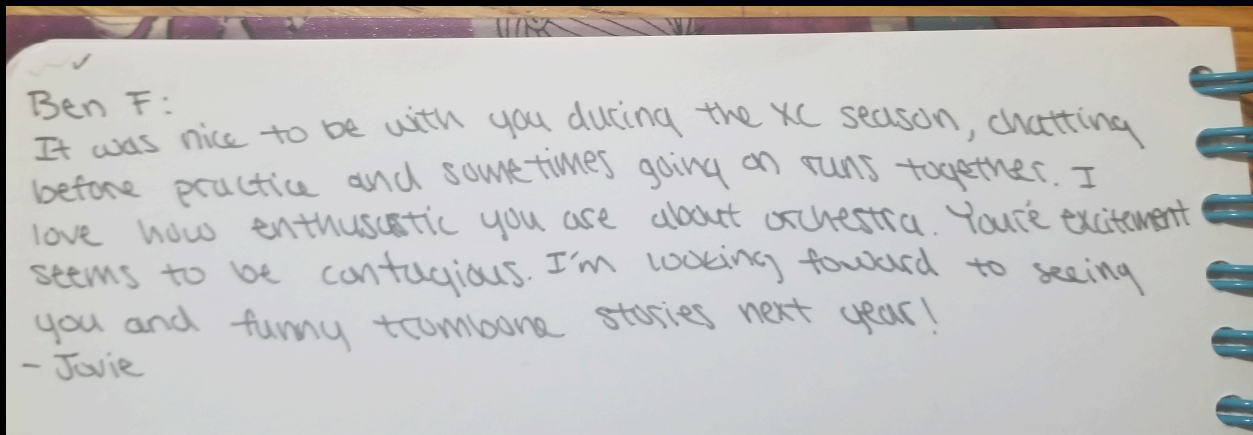 Ben F:
It was nice to be with you during the XC season, chatting
before practice and sometimes going on runs together. I
love how enthusastic you are about orchestra. You're excitement
seems to be contagious. I'm looking foward to seeing
you and funny trombone stories next year!
- Jovie